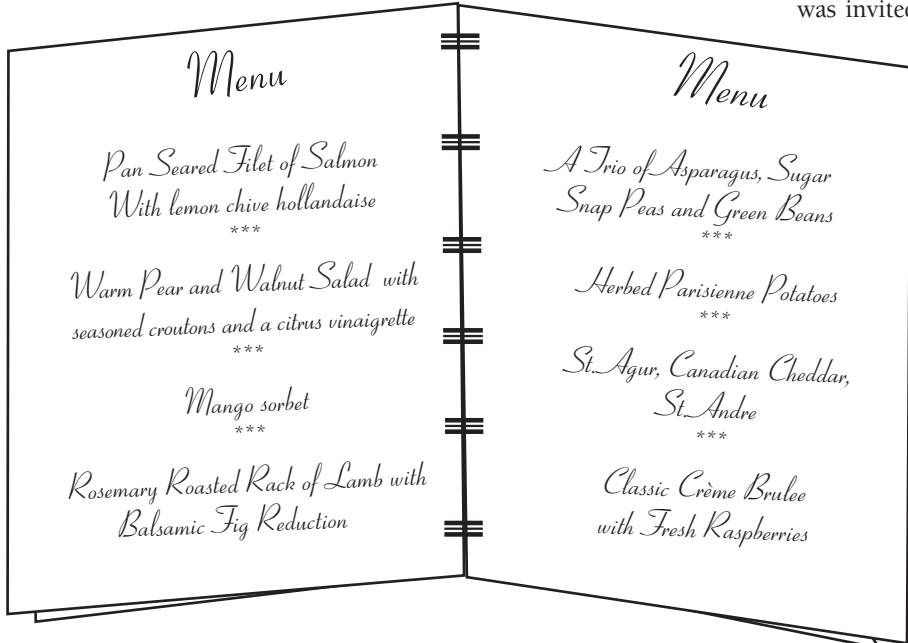 was invited
Menu
Pan Seared Filet of Salmon
With lemon chive hollandaise
***
Warm Pear and Walnut Salad with
seasoned croutons and a citrus vinaigrette
***
Mango sorbet
***
Rosemary Roasted Rack of Lamb with
Balsamic Fig Reduction
Menu
A Trio of Asparagus, Sugar
Snap Peas and Green Beans
***
Herbed Parisienne Potatoes
***
St. Agur, Canadian Cheddar,
St. Andre
***
Classic Crème Brulee
with Fresh Raspberries